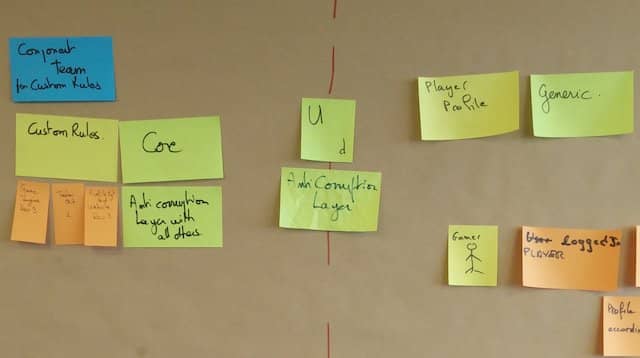 Component
Team
for Custom Rules
Custom Rules.
Core
Anti corruption
Layer with
all others
U
d
Anti Corruption
Layer
Player
Profile
Generic.
Gamer
logged In
PLAYER
Profile
accordin